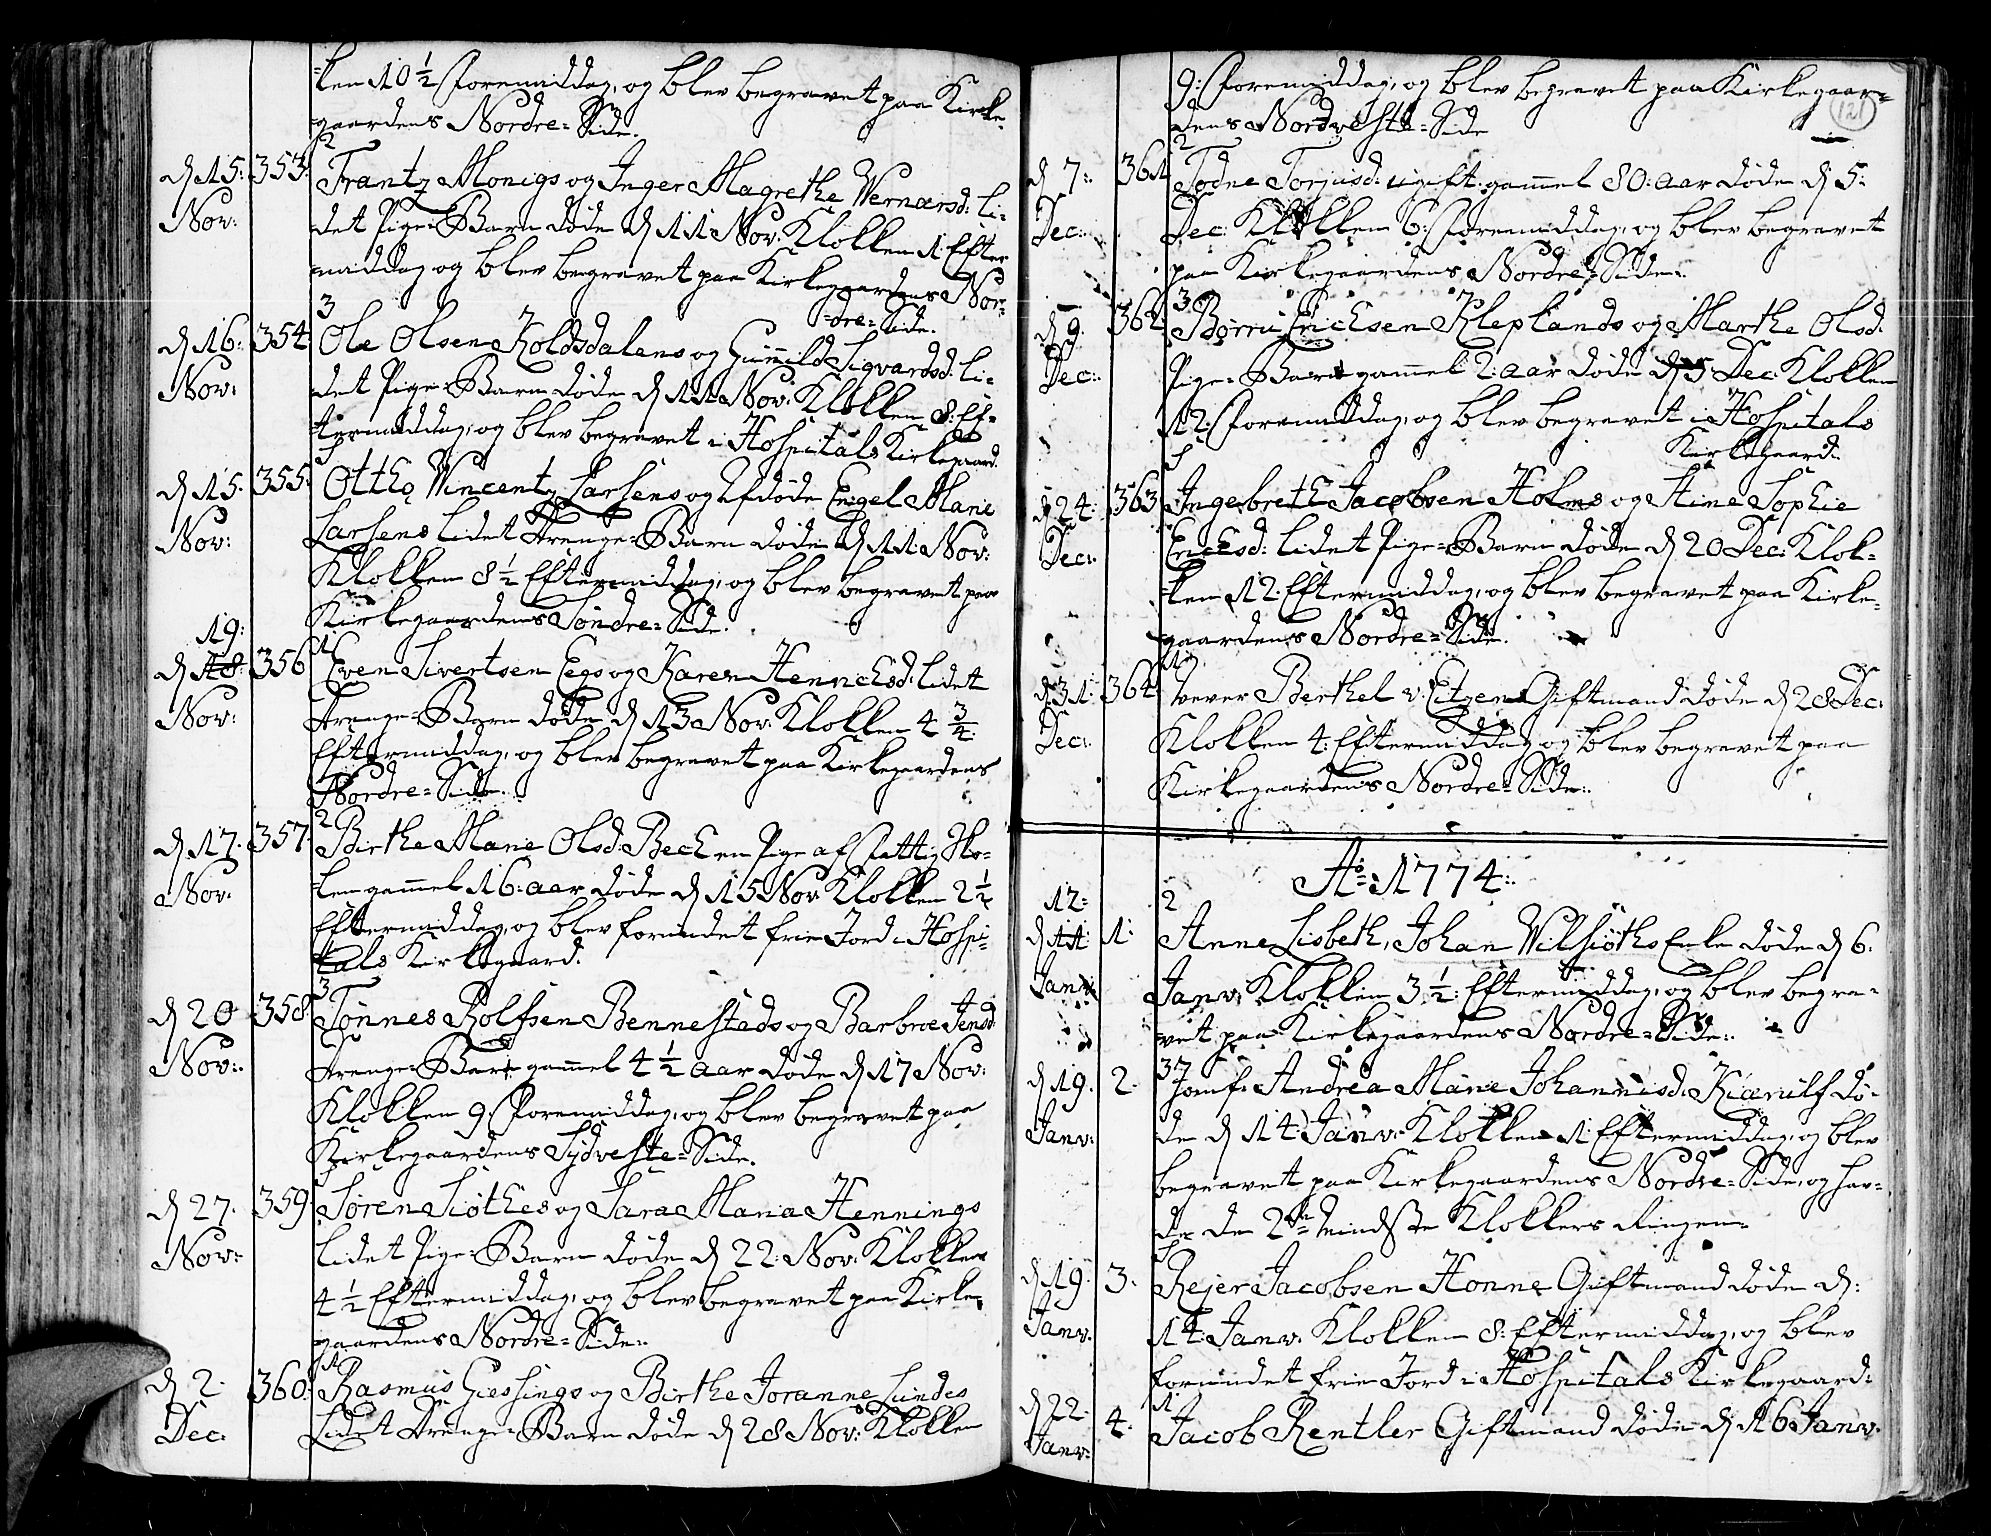 ken 10 1/2 Formiddag, og blev begravet paa Kirke-
gaardens Nordre-Side.
2
d 15: 353. Frantz Monigs og Inger Magrethe Wernersd: li-
Nov: det Pige-Barn døde d 11 Nov: Klokken 1 Efter
middag og blev begravet paa Kirkegaardens Nor-
dre-Side.
3
d 16: 354 Ole Olsen Koldsdalens og Gunnild Sigvardsd: li-
Nov: det Pige-Barn døde d 11 Nov: Klokken 8: Ef-
termiddag, og blev begravet i Hospitals Kirkegaard.
d 15. 355: Otthe Wincentz Larsens og Afdøde Engel Marie
Nov: Larsens lidet Drenge-Barn døde d 11 Nov:
Klokken 8 1/2 Eftermiddag, og blev begravet paa
Kirkegaardens Søndre-Side.
19:
d 18: 356 Even Sivertsen Eegs og Karen Henrichsd: lidet
Nov: Drenge-Barn døde d 13 Nov: Klokken 4 3/4
Eftermiddag, og blev begravet paa Kirkegaardens
Nordre-Side.
2
d 17. 357 Birthe Marie Olsd: Bech en Pige af Fattig Sko-
Nov. len gammel 16: aar døde d 15 Nov Klokken 2 1/2
Eftermiddag, og blev forundet frie Jord i Hospi-
tals Kirkegaard.
3
d 20 358. Tønnes Rolfsen Bennestads og Barbroe Jensd:
Nov:. Drenge-Barn gammel 4 1/2 aar døde d 17 Nov:
Klokken 9: Formiddag, og blev begravet paa
Kirkegaardens Sydveste-Side.
d 27. 359: Søren Siøthes og Sara Maria Hennings
Nov: lidet Pige-Barn døde d 22: Nov: Klokken
4 1/2 Eftermiddag, og blev begravet paa Kirke-
gaardens Nordre-Side:.
1
d 2. 360. Rasmus Giessings og Birthe Joranne Lundes
Dec: lidet Drenge-Barn døde d 28 Nov: Klokken
121
9: Formiddag, og blev begravet paa Kirkegaar-
dens Nordveste-Side
2
d 7: 361 Todne Torjusd: ugift: gammel 80: aar døde d 5:
Dec: Dec: Klokken 6: Formiddag, og blev begravet
paa Kirkegaardens Nordre-Side:.
3
d 9. 362 Børru Erichsen Kleplands og Marthe Olsd:
Dec: Pige-Barn gammel 2: aar døde d 5: Dec: Klokken
12: Formiddag, og blev begravet i Hospitals
Kirkegaard:
d 24: 363 Ingebreth Jacobsen Holms og Stine Sophie
Dec: Ericsd: lidet Pige-Barn døde d 20 Dec: Klok-
ken 12: Eftermiddag, og blev begravet paa Kirke-
gaardens Nordre-Side.
d 31: 364. Wever Berthel v: Eitzen Giftmand døde d 28 Dec:
Dec: Klokken 4: Eftermiddag og blev begravet paa
Kirkegaardens Nordre-Side:.
Ao: 1774:.
12: 2
d 11: 1: Anne Lisbeth, Johan Wilsiøths Enke døde d 6.
Janv: Janv: Klokken 3 1/2: Eftermiddag, og blev begra-
vet paa Kirkegaardens Nordre-Side:.
37
d 19. 2. Jomfr: Andrea Marie Johannisd: Kiærulf dø-
Janv: de d 14: Janv: Klokken 1: Eftermiddag, og blev
begravet paa Kirkegaardens Nordre-Side, og hav-
de de 2de mindste Klokkers Ringen
d 19. 3. Rejer Jacobsen Honne Giftmand døde d:
Janv. 14: Janv: Klokken 8: Eftermiddag, og blev
forundet frie Jord i Hospitals Kirkegaard:
1
d 22 4. Jacob Rentler Giftmand døde d 16 Janv.
Janv: